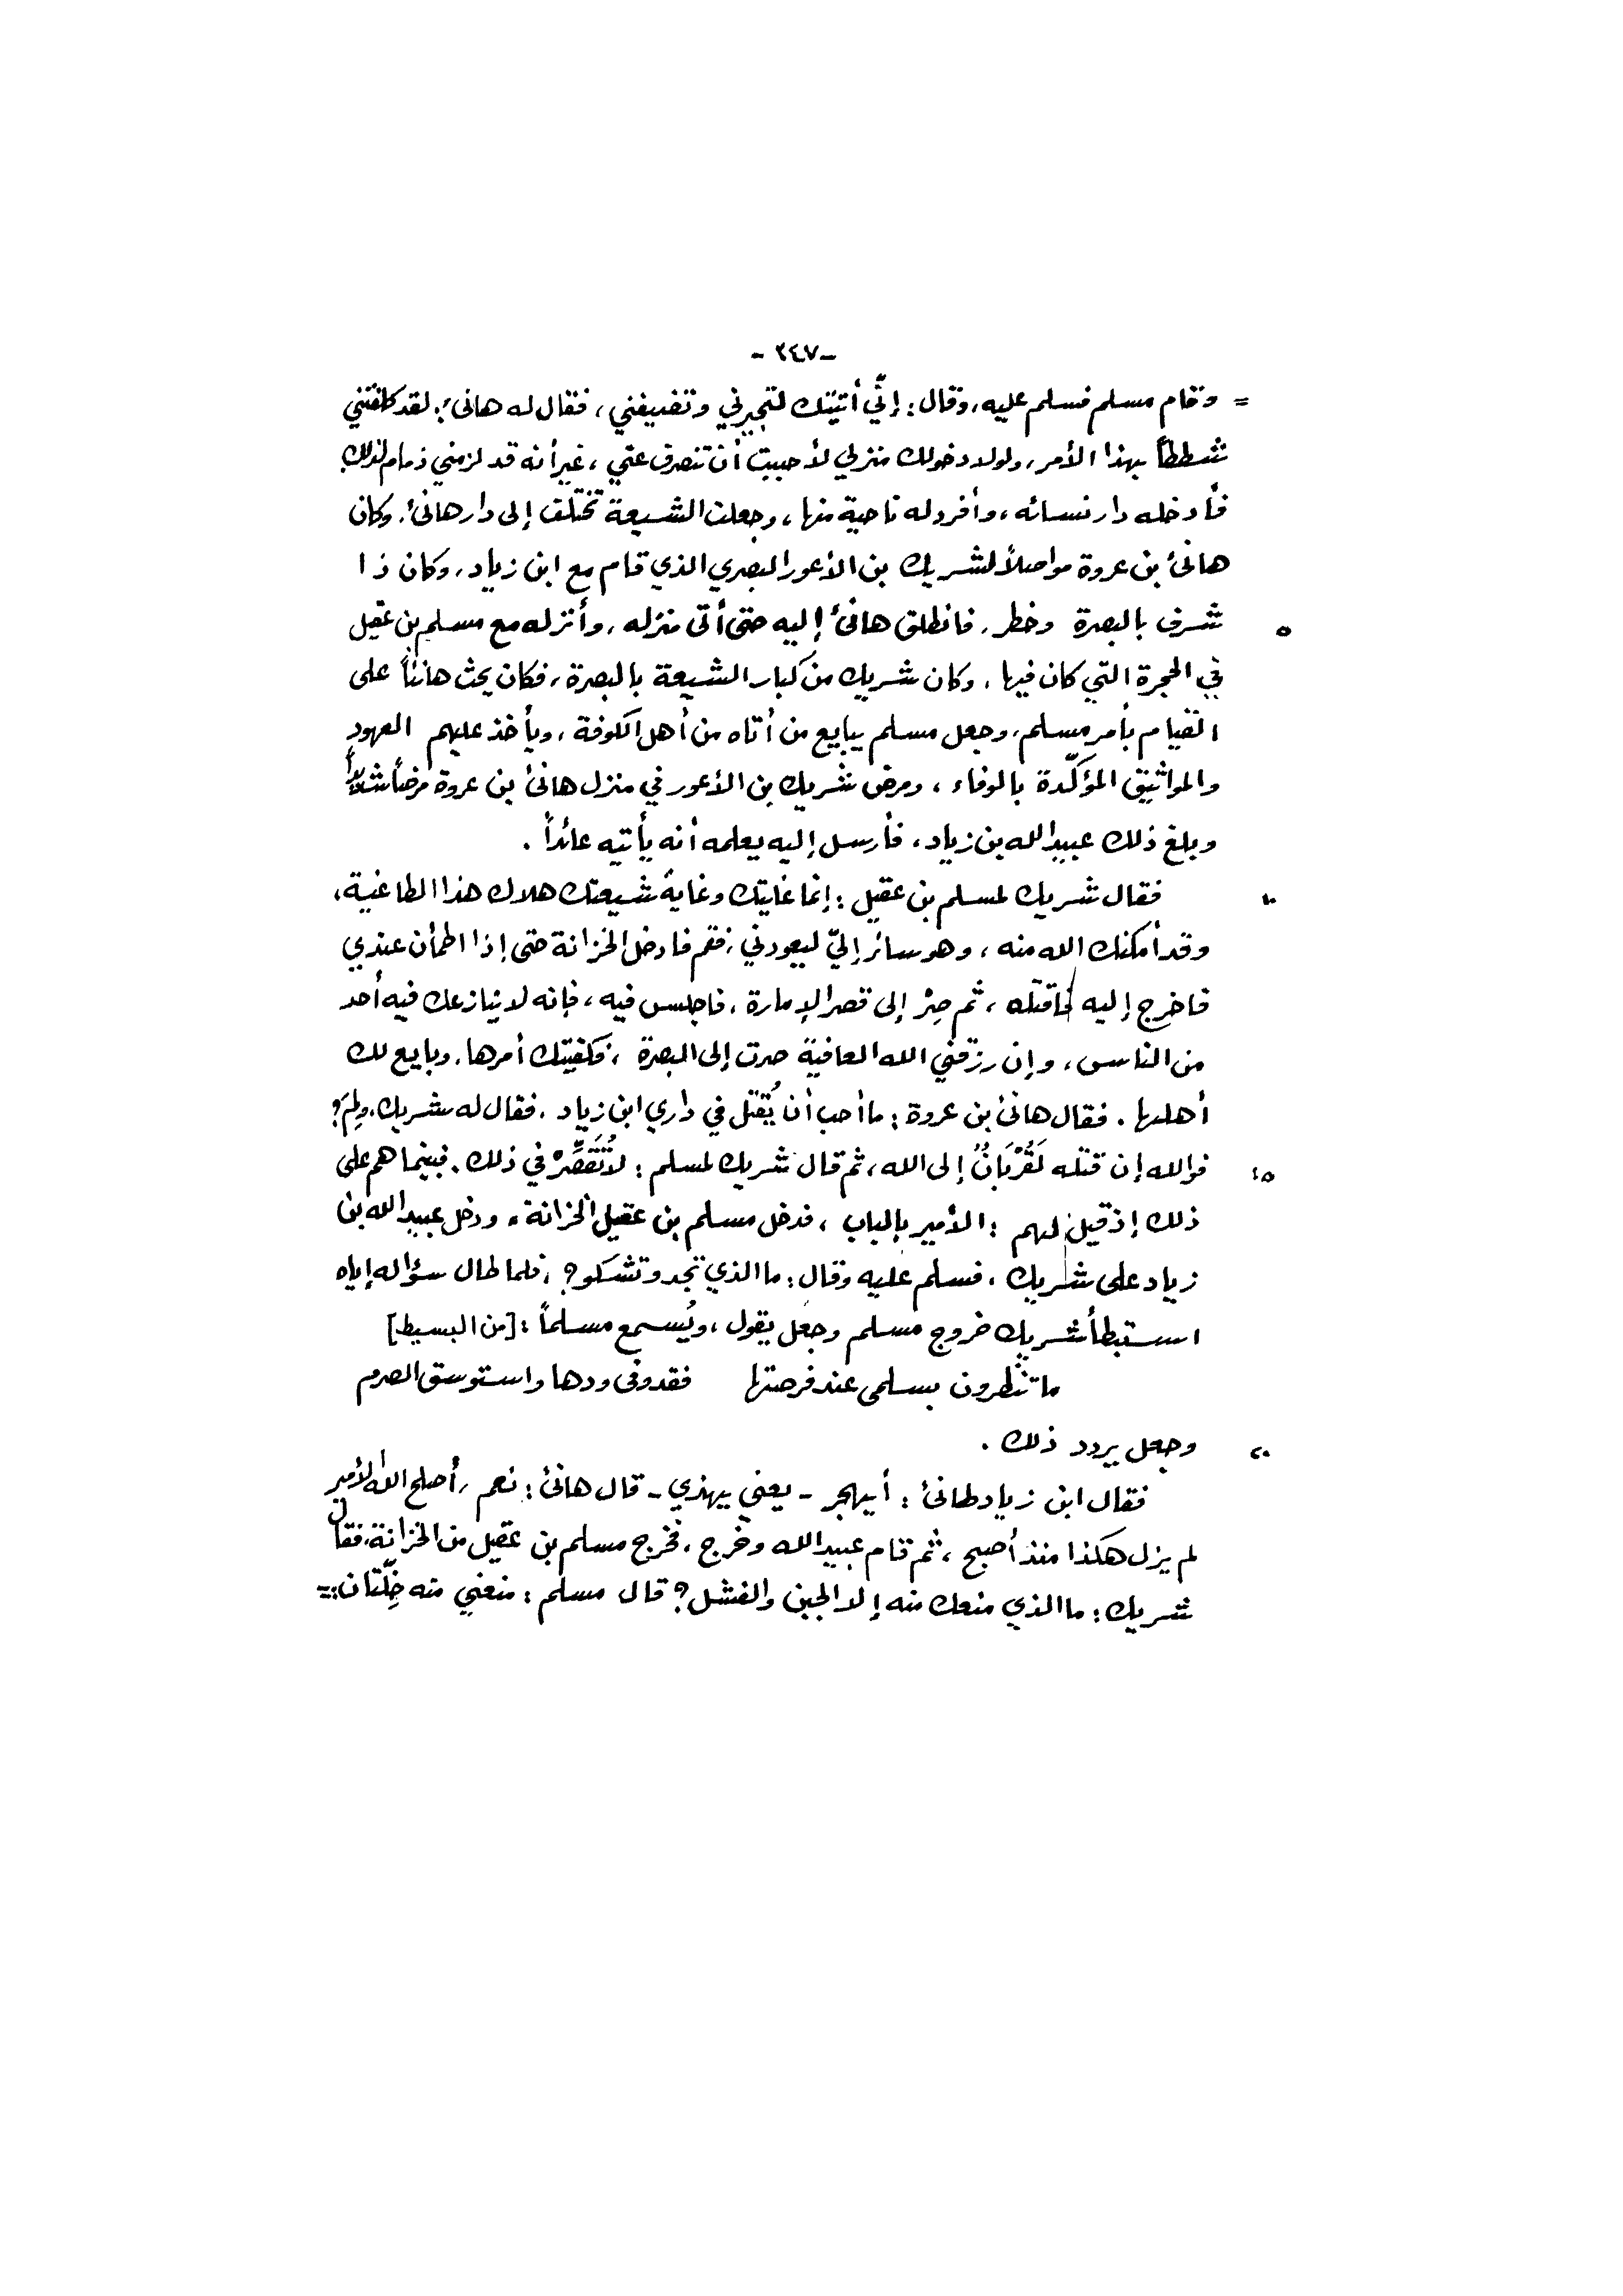 -٢٤٧-
= وقام مسلم فسلم عليه، وقال: إنّي أتيتك لتجيرني وتضيفني، فقال له هانئ: لقد كلفتني
شططاً بهذا الأمر، ولولا دخولك منزلي لأحببت أن تنصرف عني، غير أنه قد لزمني ذمام لذلك
فأدخله دار نسائه، وأفرد له ناحية منها، وجعلت الشيعة تختلف إلى دار هانئ. وكان
هانئ بن عروة مواصلاً لشريك بن الأعور البصري الذي قام مع ابن زياد، وكان ذا
٥ شرف بالبصرة وخطر، فانطلق هانئ إليه حتى أتى منزله، وأنزله مع مسلم بن عقيل
في الحجرة التي كان فيها. وكان شريك من كبار الشيعة بالبصرة، فكان يحث هانئاً على
القيام بأمر مسلم، وجعل مسلم يبايع من أتاه من أهل الكوفة، ويأخذ عليهم العهود
والمواثيق المؤكّدة بالوفاء، ومرض شريك بن الأعور في منزل هانئ بن عروة مرضاً شديداً
وبلغ ذلك عبيد الله بن زياد، فأرسل إليه يعلمه أنه يأتيه عائداً.
١٠ فقال شريك لمسلم بن عقيل: إنما غايتك وغاية شيعتك هلاك هذا الطاغية،
وقد أمكنك الله منه، وهو سائر إليّ ليعودني، فقم فادخل الخزانة حتى إذا اطمأن عندي
فاخرج إليه فاقتله، ثم صِرْ إلى قصر الإمارة، فاجلس فيه، فإنه لا ينازعك فيه أحد
من الناس، وإن رزقني الله العافية صرت إلى البصرة، فكفيتك أمرها، وبايع لك
أهلها. فقال هانئ بن عروة: ما أحب أن يُقتل في داري ابن زياد. فقال له شريك، ولِمَ؟
١٥ فوالله إن قتله لَقُرْبَانٌ إلى الله، ثم قال شريك لمسلم: لا تُقَصِّرْ في ذلك. فبينما هم على
ذلك إذ قيل لهم: الأمير بالباب، فدخل مسلم بن عقيل الخزانة، ودخل عبيد الله بن
زياد على شريك، فسلم عليه وقال: ما الذي تجد وتشكو؟، فلما طال سؤاله إياه
استبطأ شريك خروج مسلم وجعل يقول، ويُسمع مسلماً: [من البسيط]
ما تنظرون بسلمى عند فرصتها فقد وفى ودها واستوسق الصرم
٢٠ وجعل يردد ذلك.
فقال ابن زياد لهانئ: أيهجر - يعني يهذي - قال هانئ: نعم، أصلح الله الأمير
لم يزل هكذا منذ أصبح، ثم قام عبيد الله وخرج، فخرج مسلم بن عقيل من الخزانة، فقال
شريك: ما الذي منعك منه إلا الجبن والفشل؟ قال مسلم: منعني منه خِلّتان: =